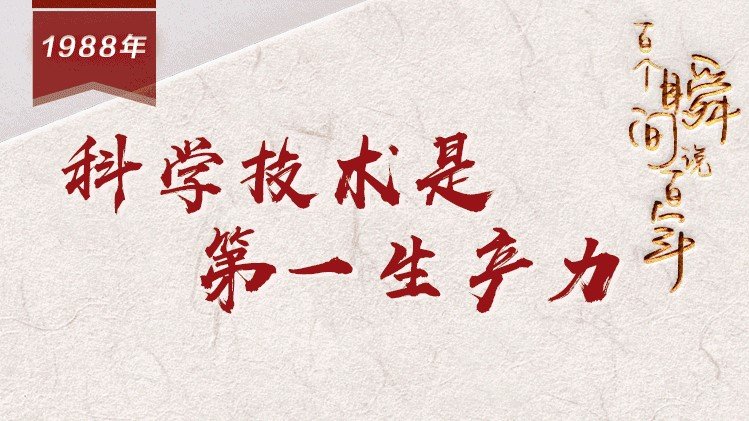 1988年
科学技术是
第一生产力
百个瞬间说百年